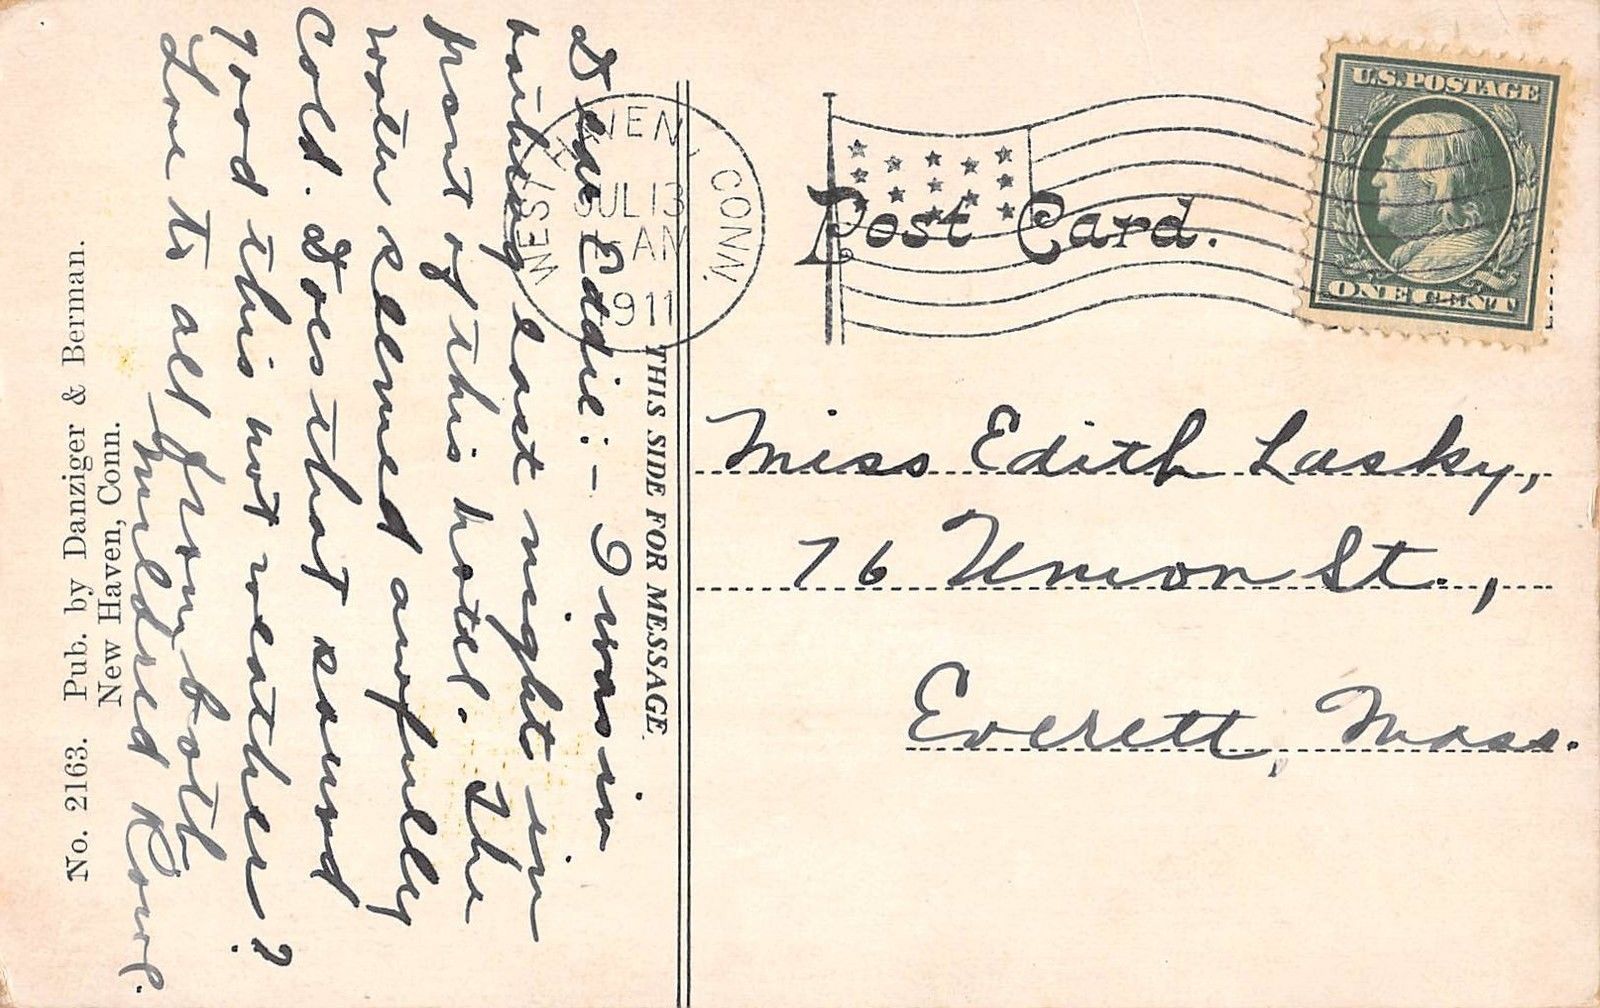 Dear Eddie:- I was in
bathing last night in
front of this hotel. The
water seemed awfully
Cold. Does that sound
good this hot weather?
Love to all from both
Mildred Rowe.
THIS SIDE FOR MESSAGE
No. 2163. Pub. by Danziger & Berman.
New Haven, Conn.
WEST HAVEN, CONN.
JUL 13
AM
1911
Post Card.
U.S. POSTAGE
ONE CENT
Miss Edith Lasky,
76 Union St.,
Everett, Mass.